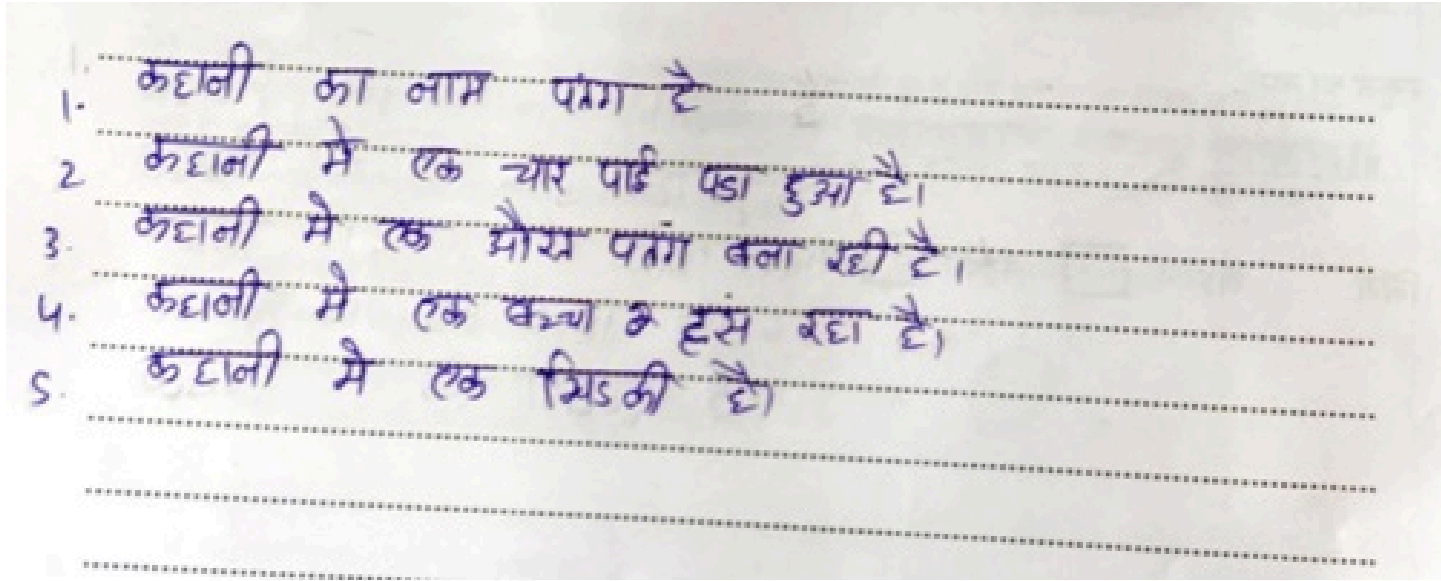 1. कहानी का नाम पंतग है
2 कहानी मे एक चार पाई पडा हुआ है।
3. कहानी मे एक पतंग बना रही है।
4. कहानी मे एक बच्चा हंस रहा है।
5. कहानी मे एक है।